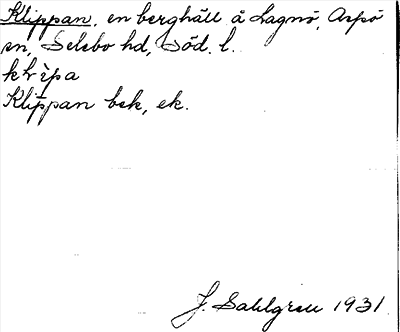 Klippan, en berghäll å Lagnö, Aspö
sn, Selebo hd, Söd. l.
klìpa
Klippan bek, ek.
J. Sahlgren 1931